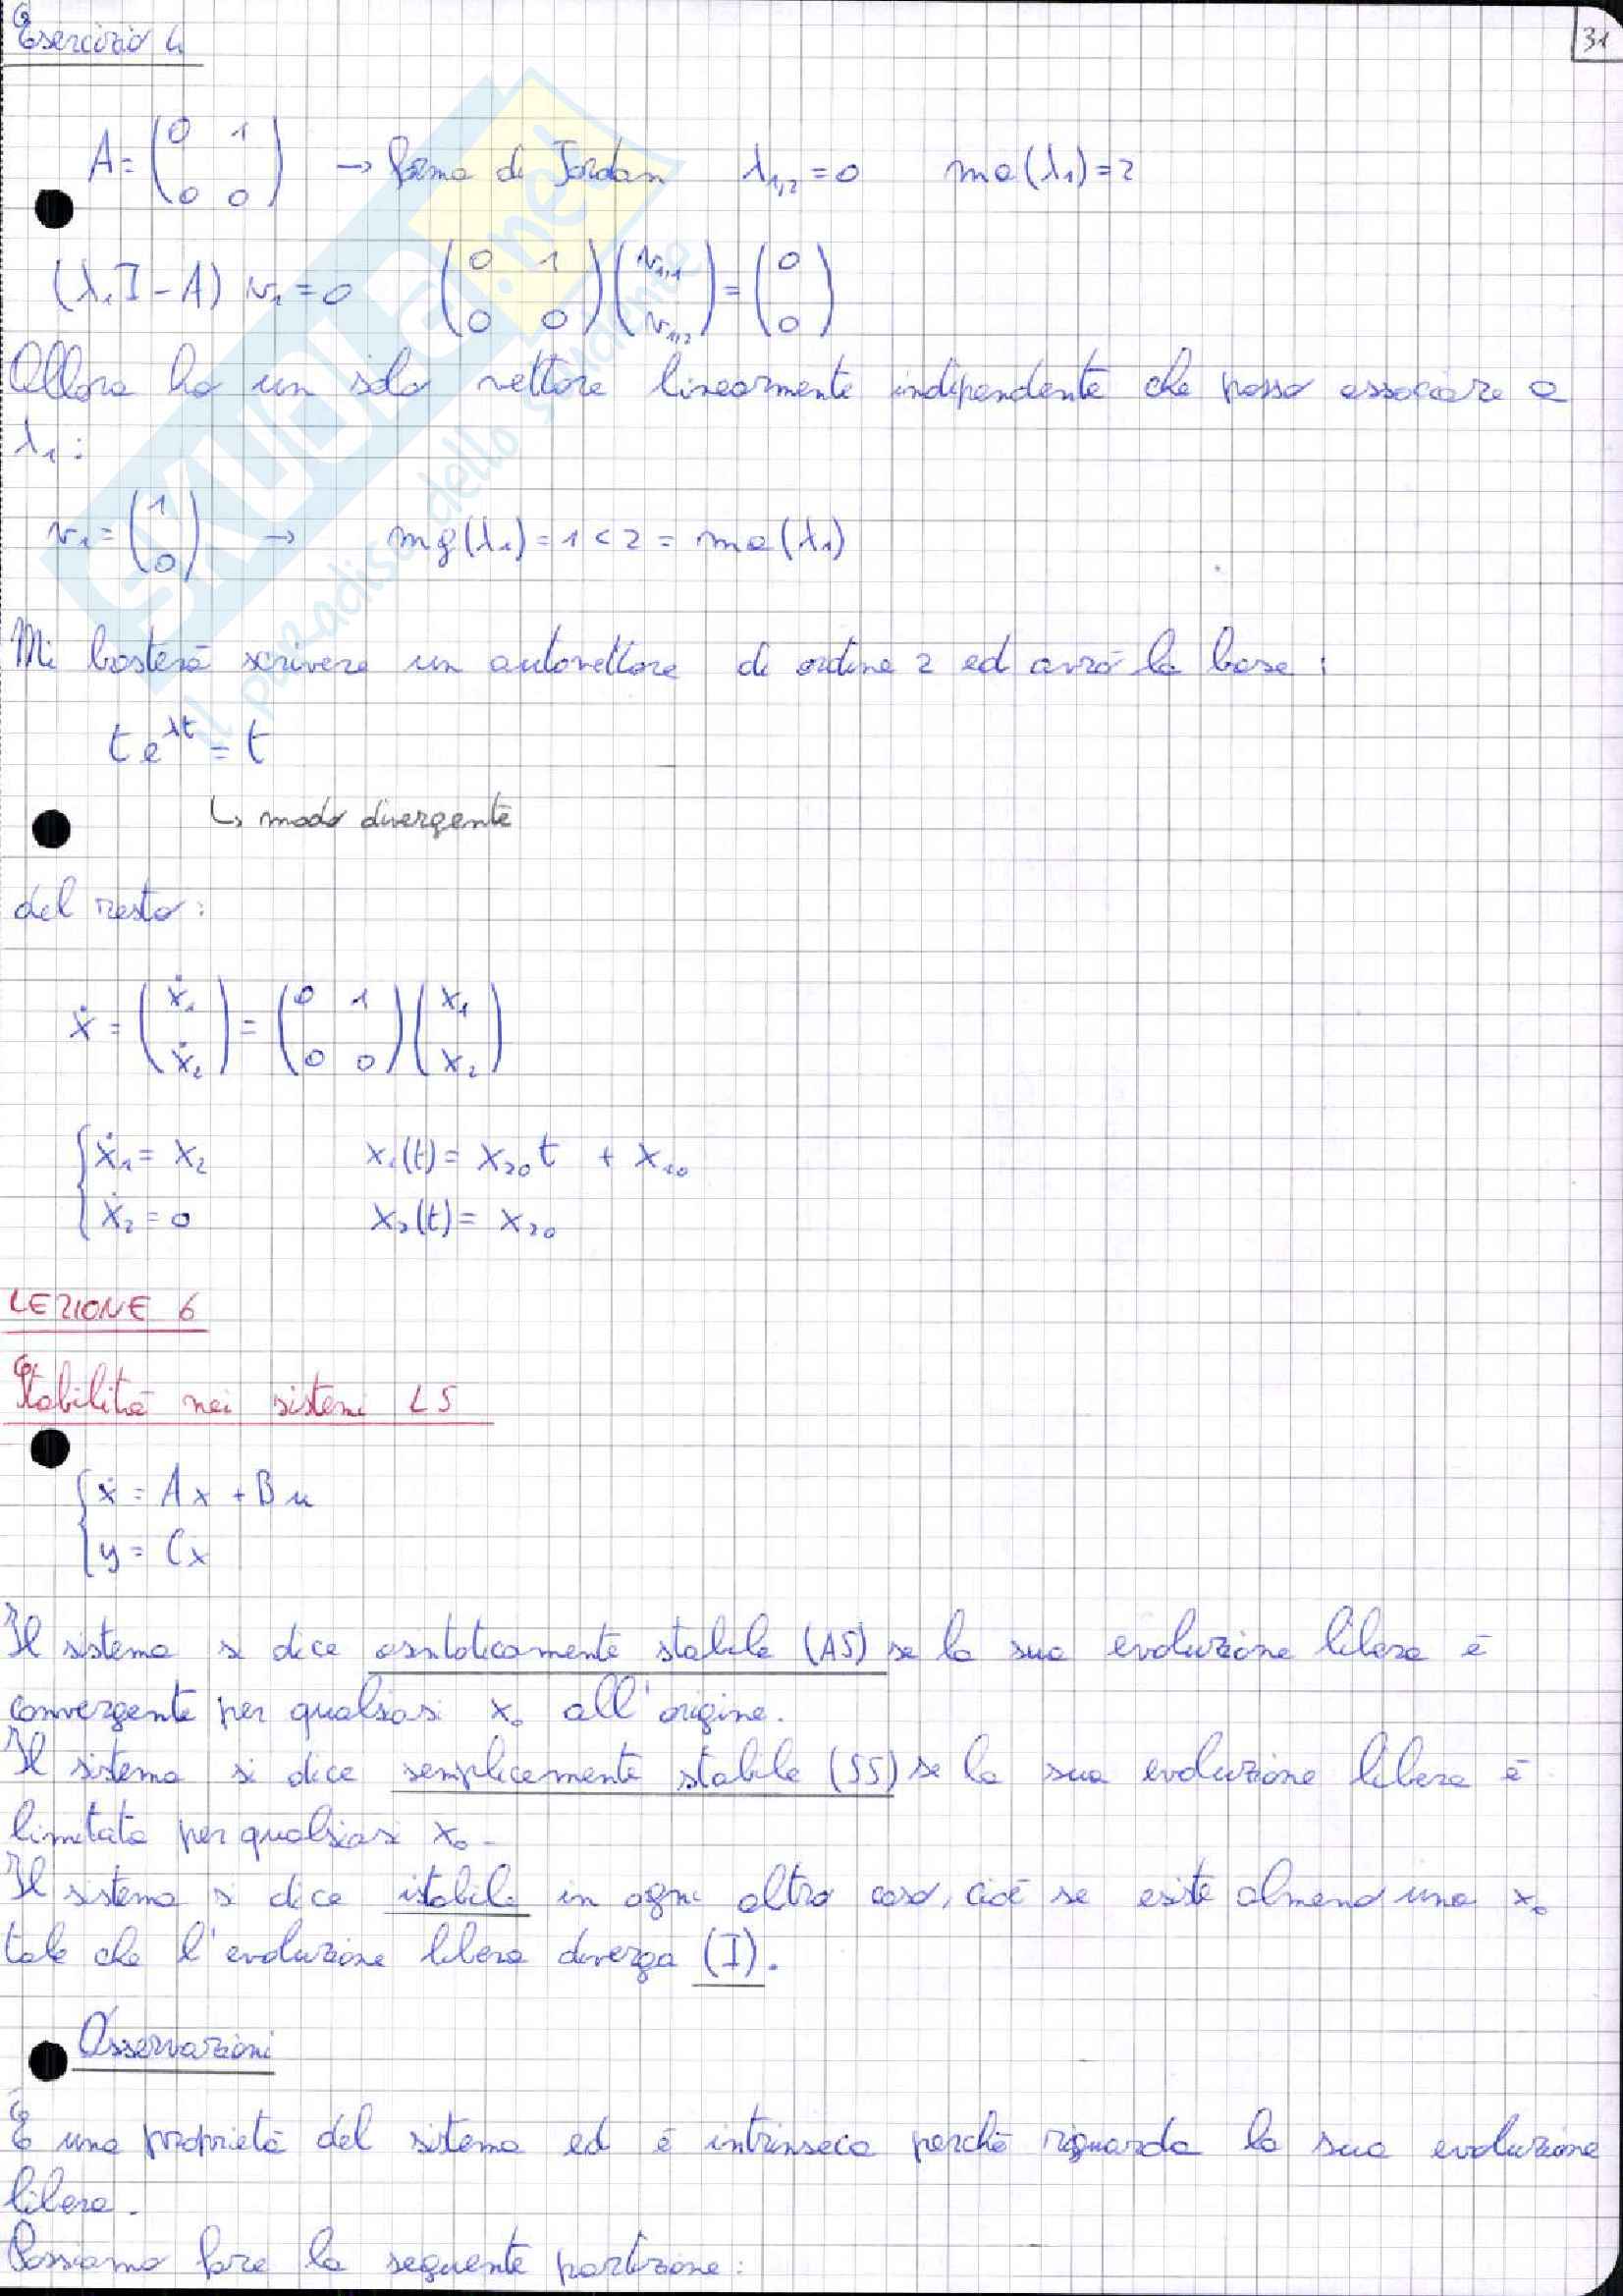 Esercizio 4
31
A = (0 1; 0 0) → forma di Jordan λ1,2 = 0 ma(λ1) = 2
(λ1I - A) v1 = 0 (0 1; 0 0)(v1,1; v1,2) = (0; 0)
Allora ho un solo vettore linearmente indipendente che posso associare a
λ1:
v1 = (1; 0) → mg(λ1) = 1 < 2 = ma(λ1)
Mi basterà scrivere un autovettore di ordine 2 ed avrò la base:
t e^λt = t
↳ modo divergente
del resto:
ẋ = (ẋ1; ẋ2) = (0 1; 0 0)(x1; x2)
ẋ1 = x2 x1(t) = x20 t + x10
ẋ2 = 0 x2(t) = x20
LEZIONE 6
Stabilità nei sistemi LS
ẋ = Ax + Bu
y = Cx
Il sistema si dice asintoticamente stabile (AS) se la sua evoluzione libera è
convergente per qualsiasi x0 all'origine.
Il sistema si dice semplicemente stabile (SS) se la sua evoluzione libera è
limitata per qualsiasi x0.
Il sistema si dice istabile in ogni altro caso, cioè se esiste almeno una x0
tale che l'evoluzione libera diverga (I).
Osservazioni
È una proprietà del sistema ed è intrinseca perché riguarda la sua evoluzione
libera.
Possiamo fare la seguente partizione:
SKUOLA.net
il paradiso dello studente